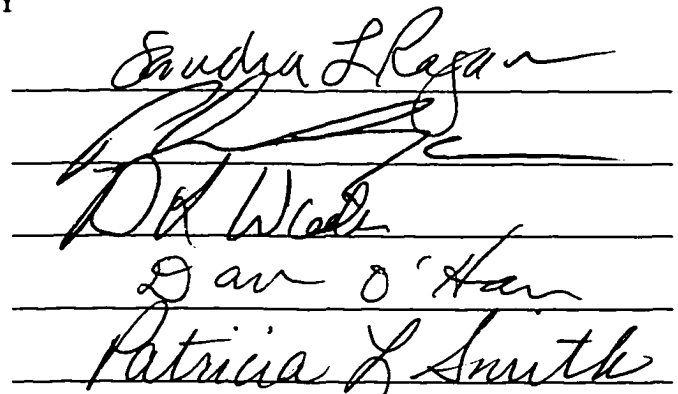 Y
Sandra L Ragan
D K Wade
Dan O'Han
Patricia L Smith